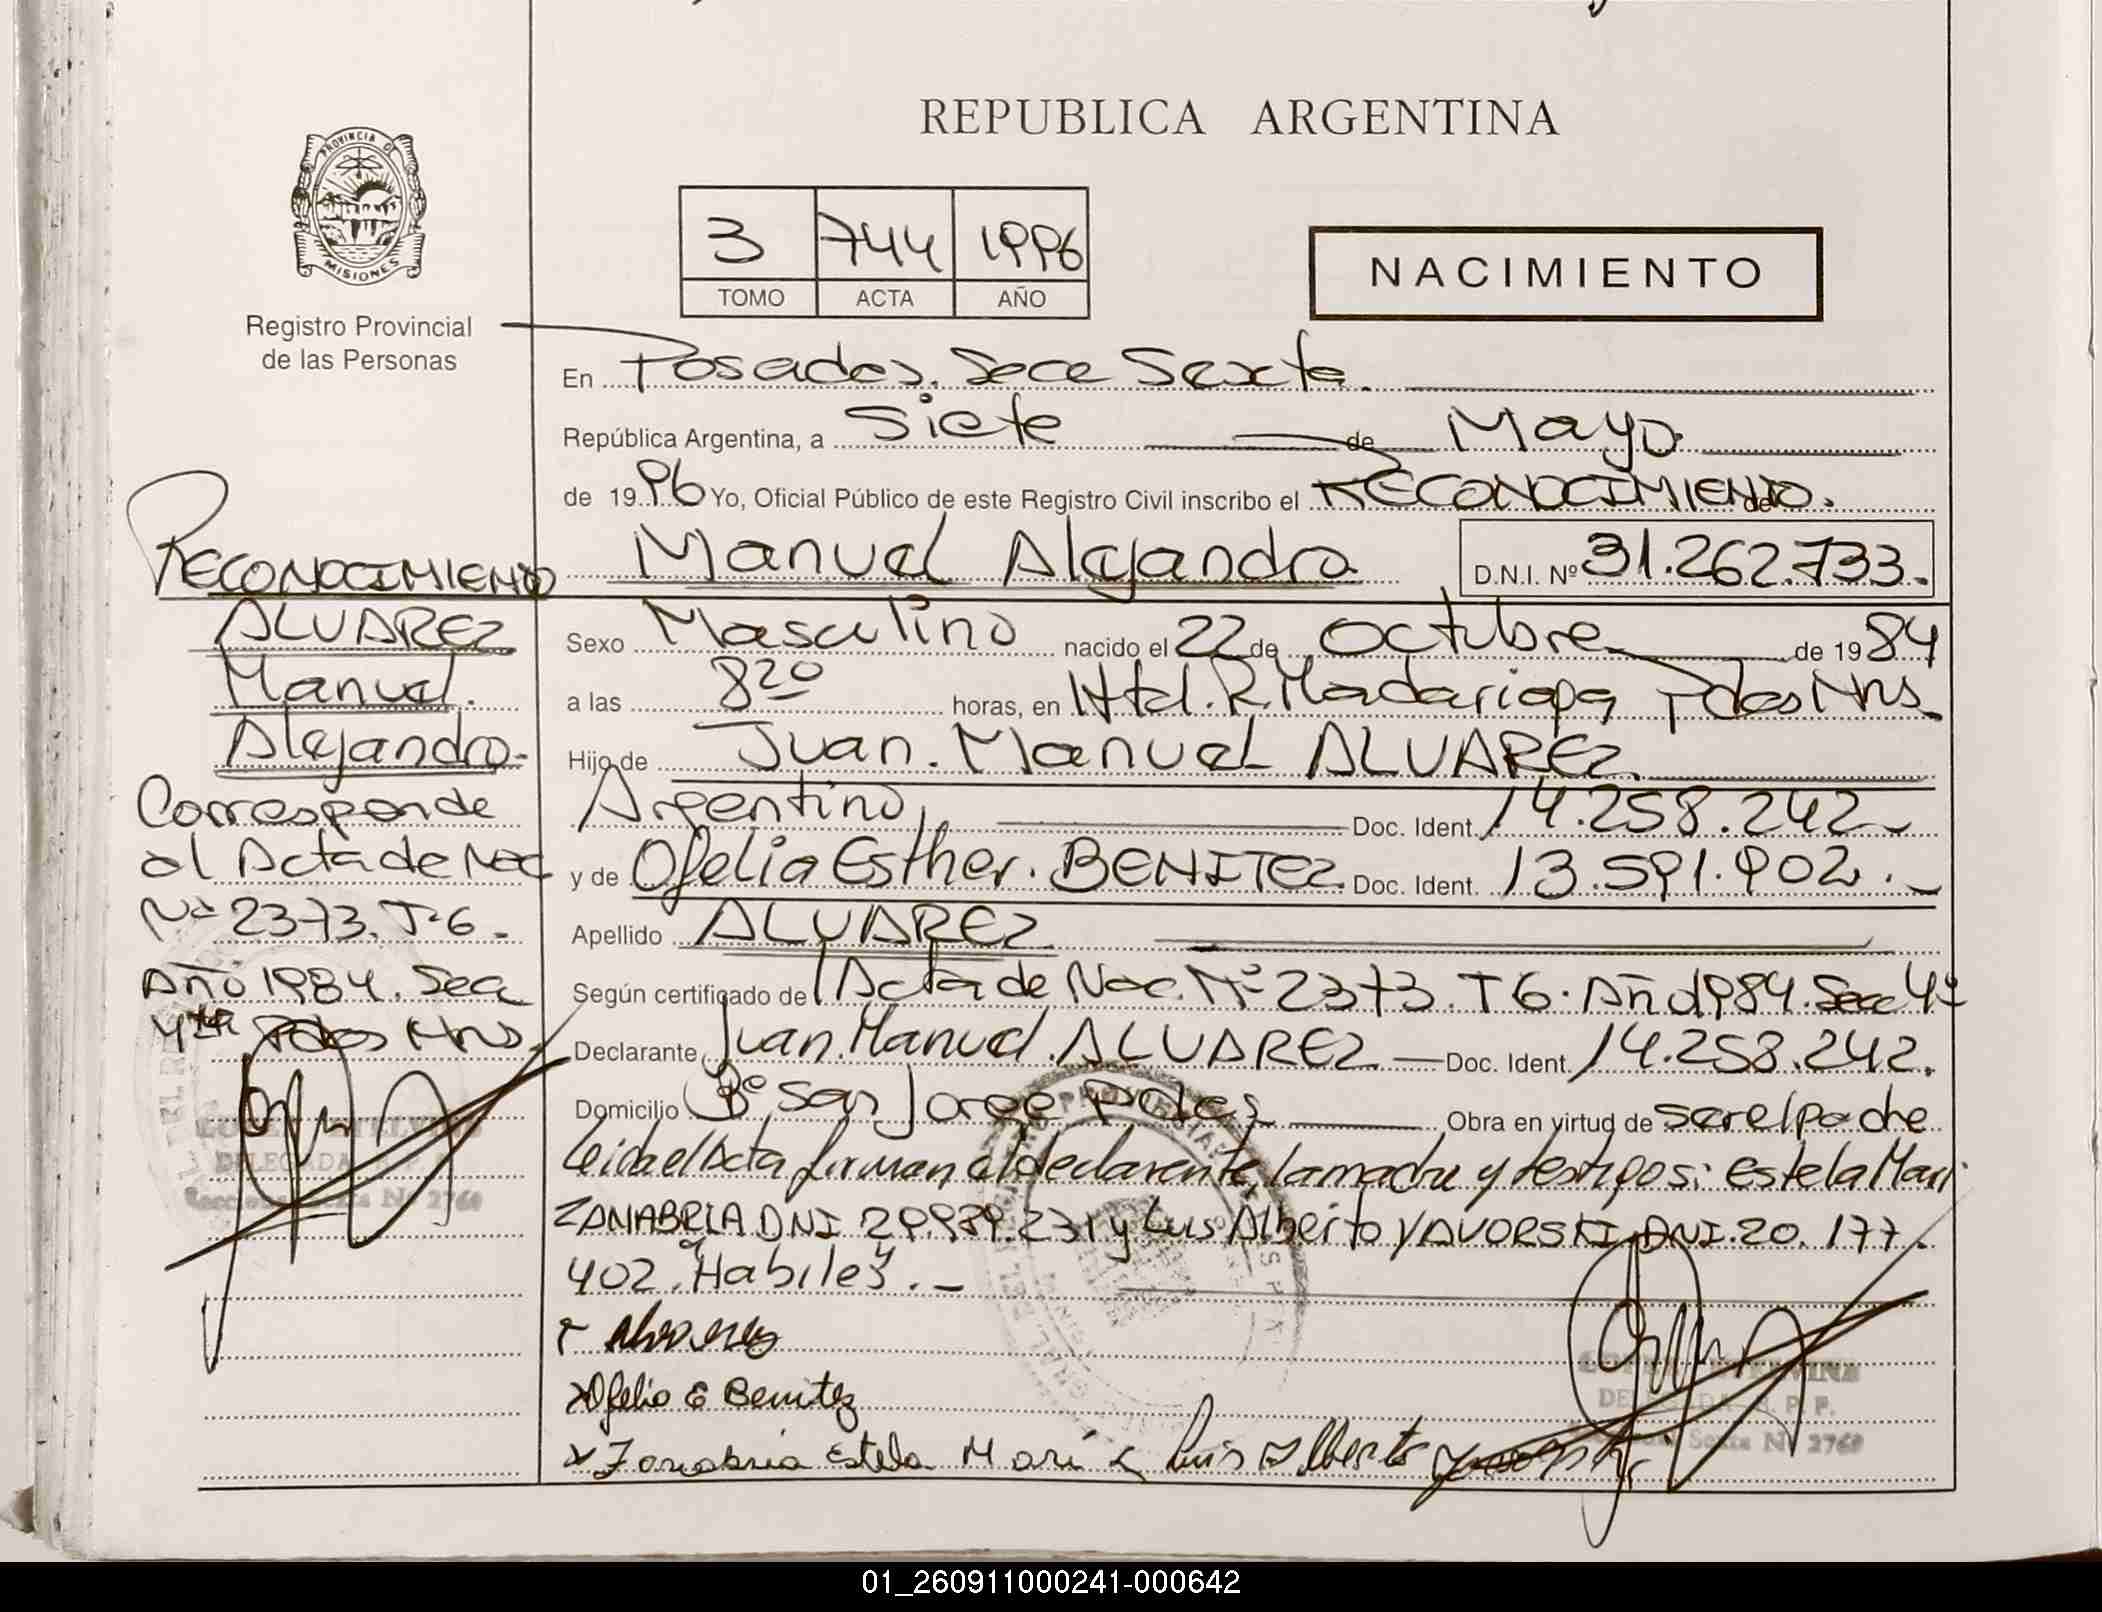 REPUBLICA ARGENTINA
PROVINCIA DE
MISIONES
Registro Provincial
de las Personas
3 744 1996
TOMO ACTA AÑO
NACIMIENTO
En Posadas. Secc Sexta.
República Argentina, a Siete de Mayo.
de 1996 Yo, Oficial Público de este Registro Civil inscribo el RECONOCIMIENTO. de
Manuel Alejandro D.N.I. Nº 31.262.733.
Sexo Masculino nacido el 22 de Octubre de 1984
a las 8 20 horas, en Htal. R. Madariaga Pdas Mns.
Hijo de Juan. Manuel ALVAREZ
Argentino, Doc. Ident. 14.258.242
y de Ofelia Esther. BENITEZ Doc. Ident. 13.591.902.
Apellido ALVAREZ
Según certificado de Acta de Nac. Nº 2373. T 6. Año 1984. Secc 4º
Declarante Juan. Manuel. ALVAREZ Doc. Ident. 14.258.242.
Domicilio Bº San Jorge Pdas Obra en virtud de ser el padre
Leida el Acta firman el declarante, la madre y testigos: Estela Mari
ZANABRIA DNI. 29.989.231 y Luis Alberto YAVORSKI DNI. 20.177.
402. "Habiles". -
Alvarez
Ofelia E Benitez
Zanabria Estela Mari Luis Alberto
RECONOCIMIENTO
ALVAREZ
Manuel.
Alejandro.
Corresponde
al Acta de Nac
Nº 2373. T-6.
Año 1984. Secc
4ta Pdas Mns.
DELEGADA R. P. P.
Sexta Nº 2760
DELEGADA R. P. P.
Sexta Nº 2760
01_260911000241-000642